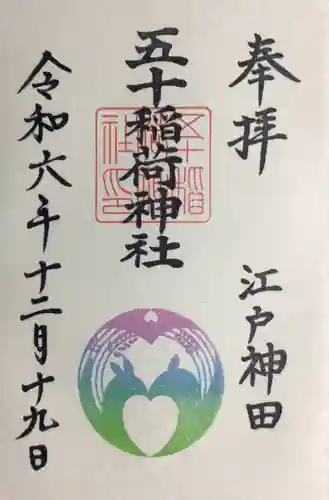 奉拝
江戸神田
五十稲荷神社
令和六年十二月十九日